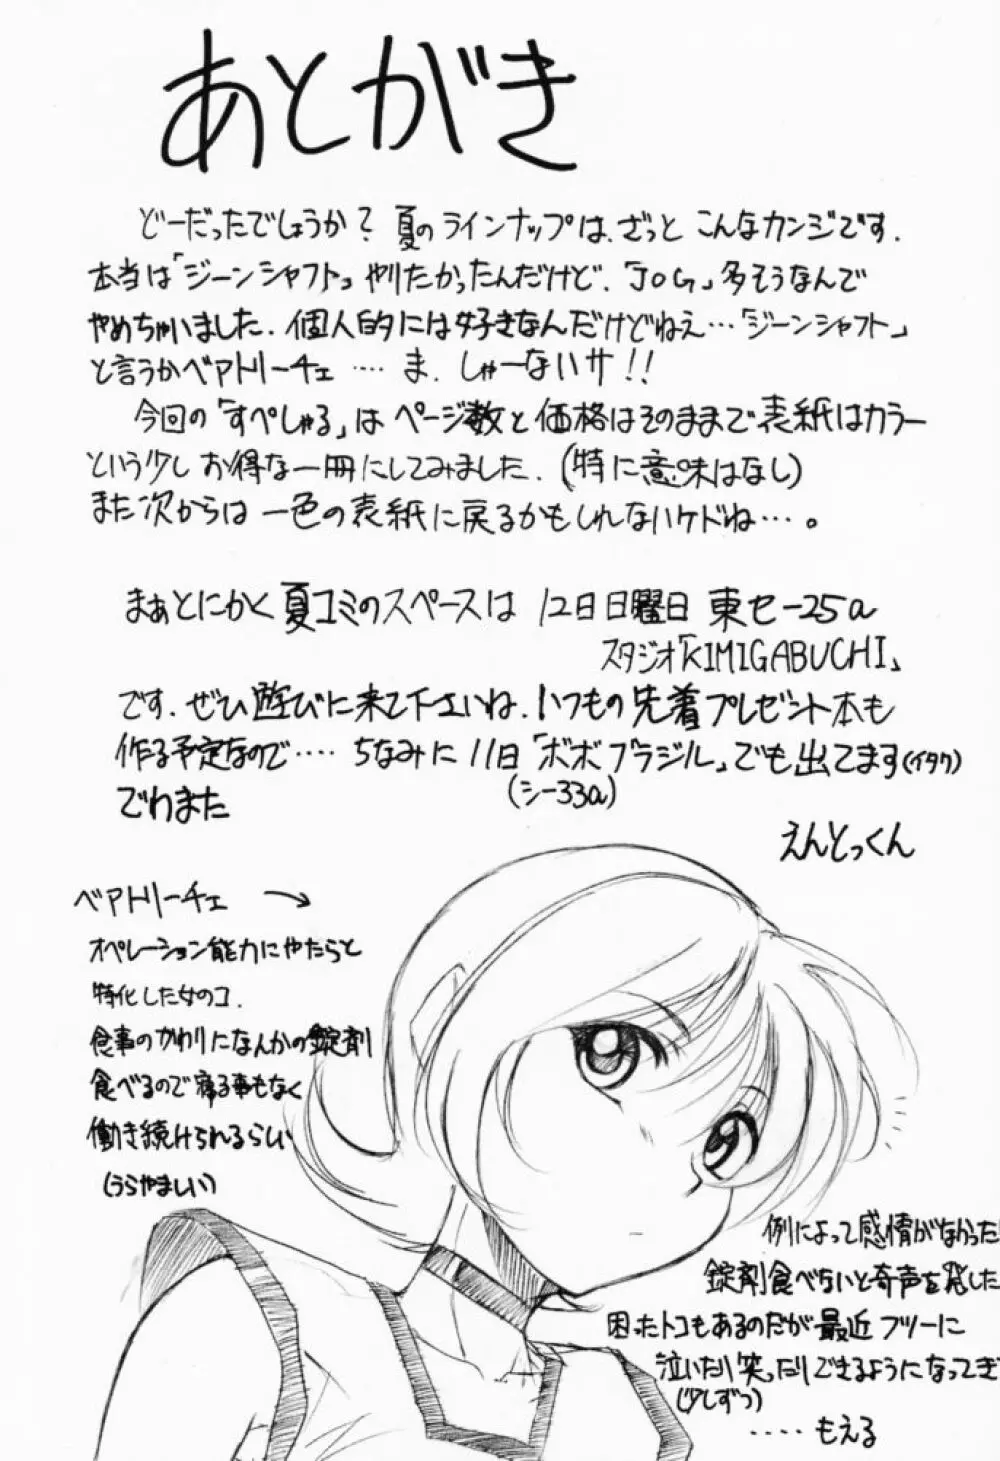 あとがき
どーだったでしょうか？夏のラインナップは、ざっと こんなカンジです.
本当は「ジーンシャフト」やりたかったんだけど、「JOG」多そうなんで
やめちゃいました. 個人的には好きなんだけどねえ…「ジーンシャフト」
と言うかベアトリーチェ …. ま、しゃーないサ!!
今回の「すぺしゃる」は ページ数と価格はそのままで表紙はカラー
という少し お得な一冊にしてみました.（特に意味はなし）
また次からは 一色の表紙に戻るかもしれないケドね…。
まぁとにかく 夏コミのスペースは 12日日曜日 東セー25a
スタジオ「KIMIGABUCHI」
です. ぜひ遊びに来て下さいね. いつもの先着プレゼント本も
作る予定なので…. ちなみに 11日「ボボブラジル」でも出てます(イタク)
(シー33a)
でわまた
えんとっくん
ベアトリーチェ →
オペレーション能力にやたらと
特化した女のコ.
食事のかわりになんかの錠剤
食べるので寝る事もなく
働き続けられるらしい
(うらやましい)
例によって感情がなかった
錠剤食べないと奇声を発した
困ったトコもあるのだが最近フツーに
泣いたり笑ったりできるようになってき
(少しずつ)
…. もえる